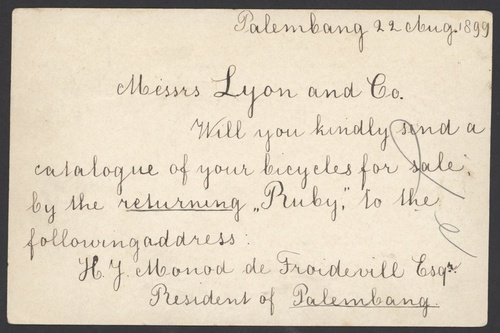 Palembang 22 Aug. 1899
Missrs Lyon and Co.
Will you kindly send a
catalogue of your bicycles for sale,
by the returning „Ruby," to the
followingaddress:
H. J. Monod de Froidevill Esqr.
Resident of Palembang.